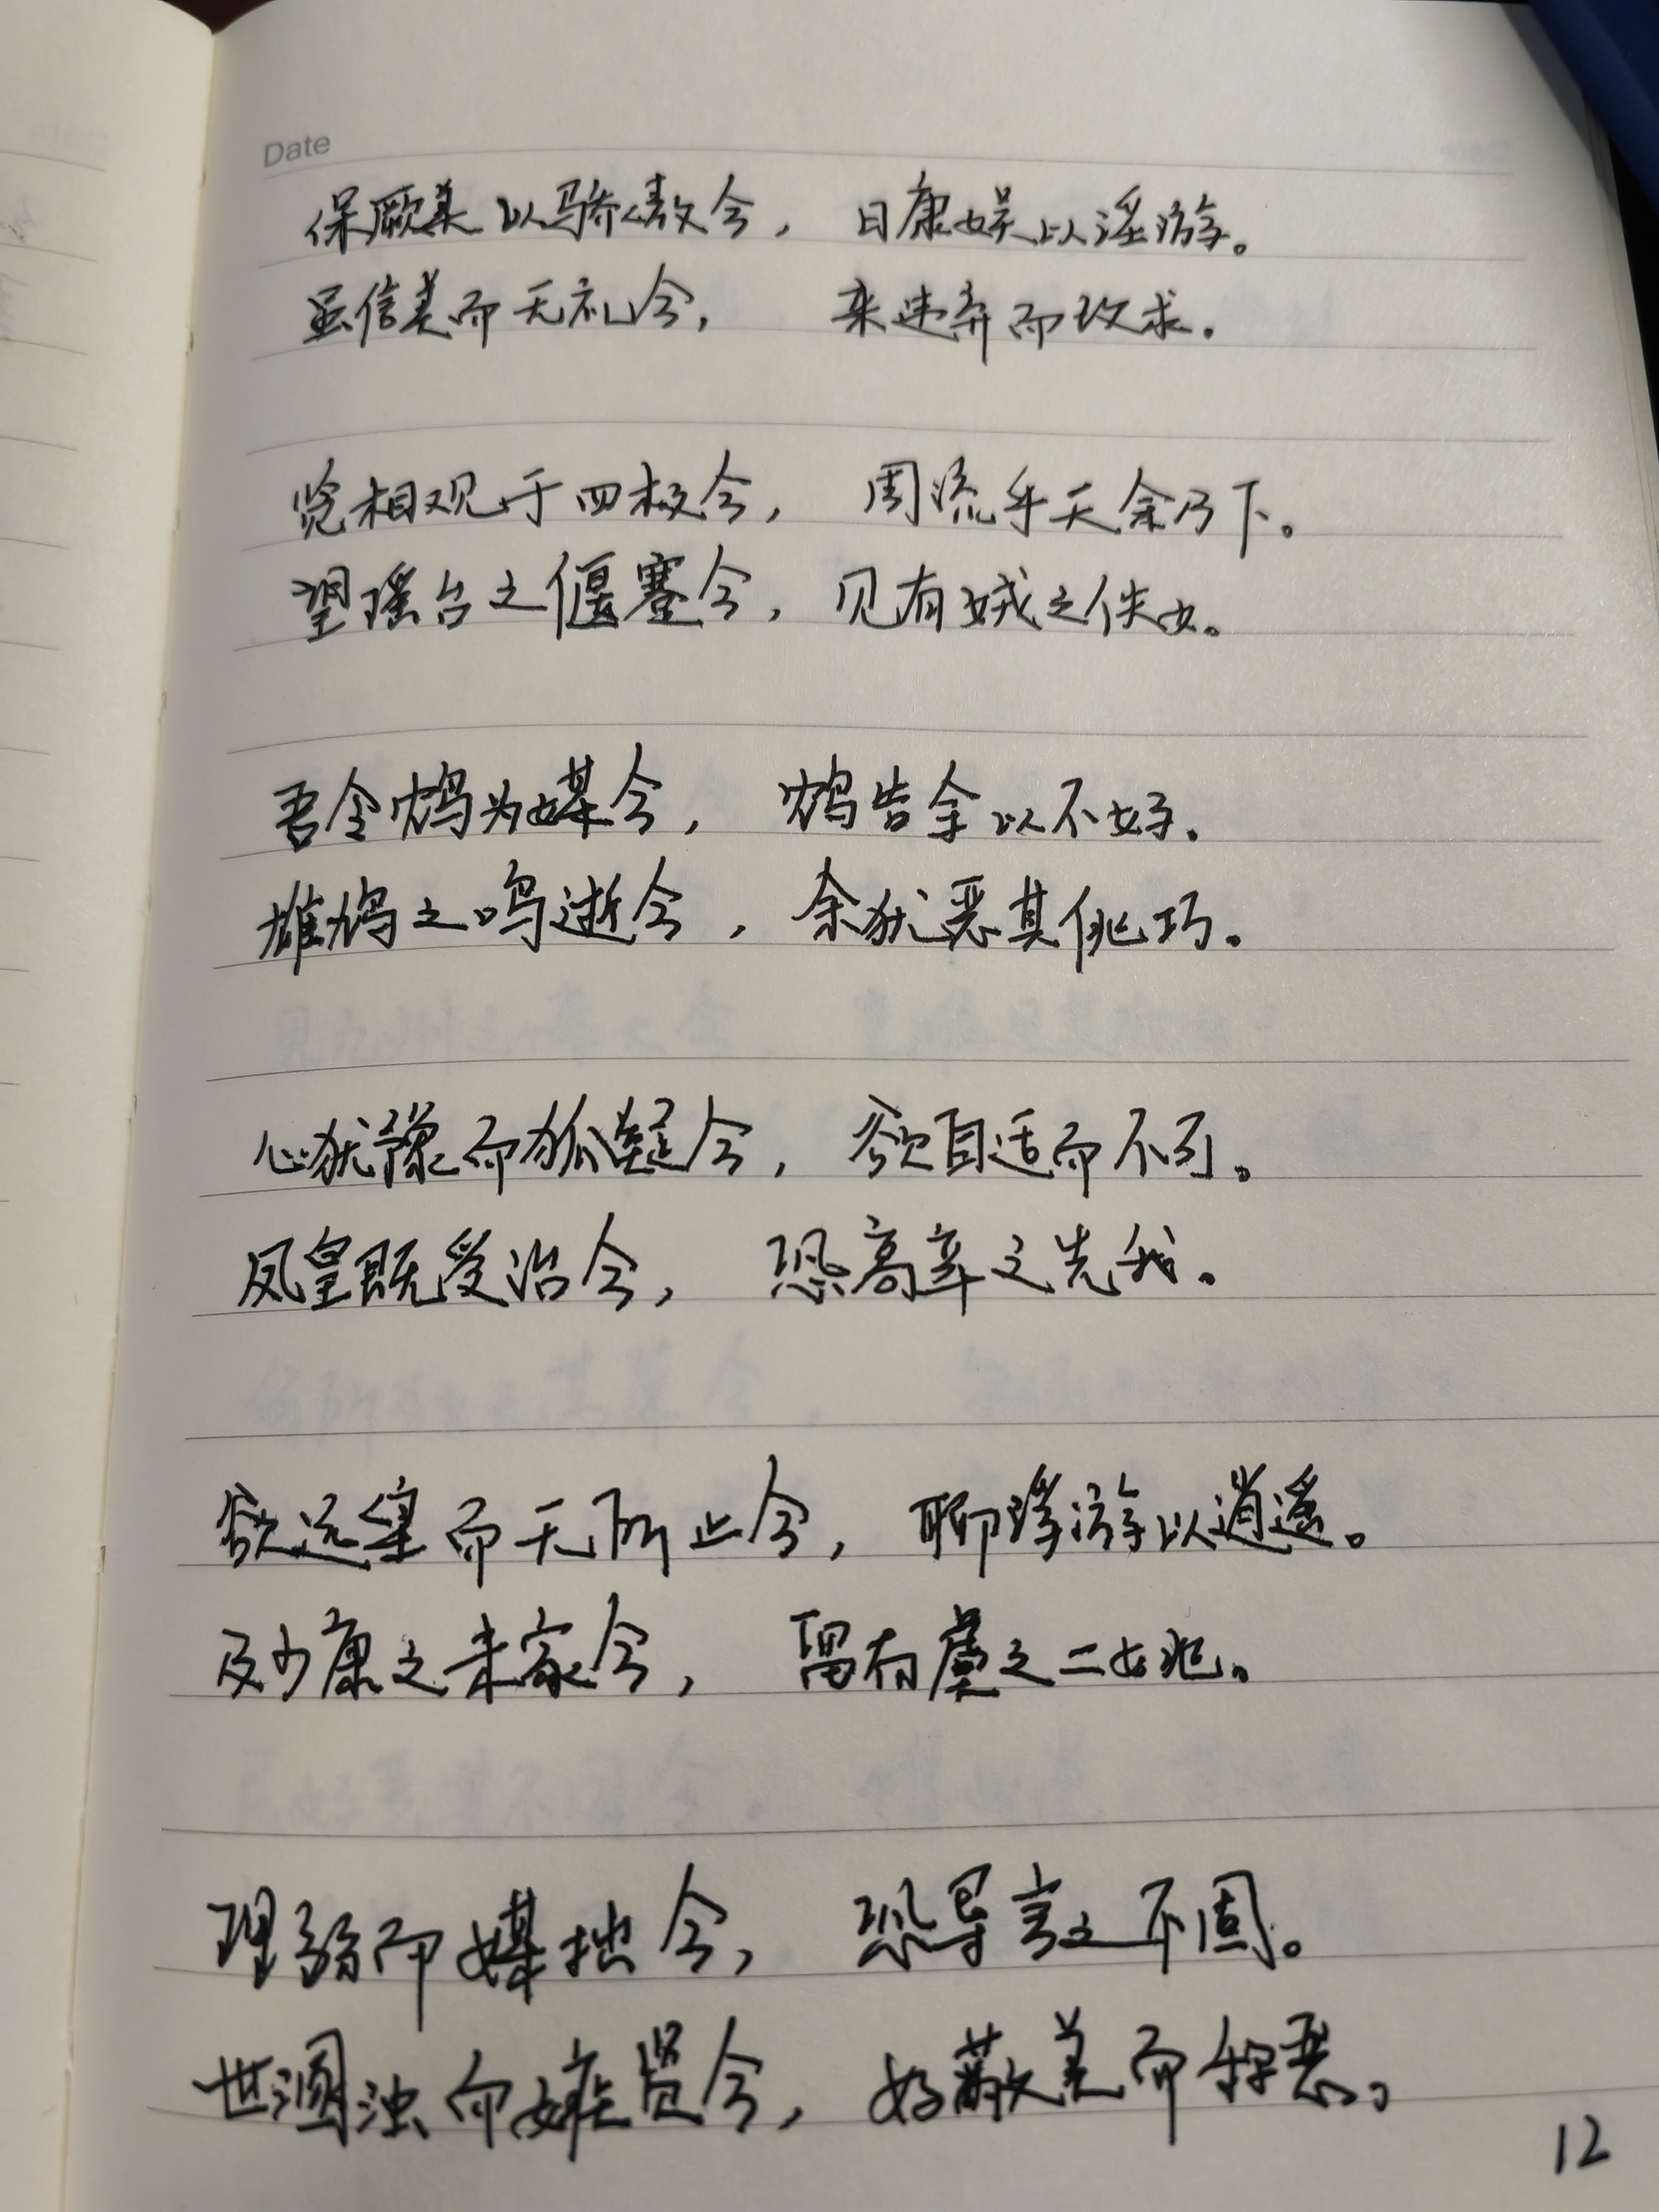 Date
保厥美以骄傲兮，日康娱以淫游。
虽信美而无礼兮，来违弃而改求。
览相观于四极兮，周流乎天余乃下。
望瑶台之偃蹇兮，见有娀之佚女。
吾令鸩为媒兮，鸩告余以不好。
雄鸠之鸣逝兮，余犹恶其佻巧。
心犹豫而狐疑兮，欲自适而不可。
凤皇既受诒兮，恐高辛之先我。
欲远集而无所止兮，聊浮游以逍遥。
及少康之未家兮，留有虞之二姚。
理弱而媒拙兮，恐导言之不固。
世溷浊而嫉贤兮，好蔽美而称恶。
12